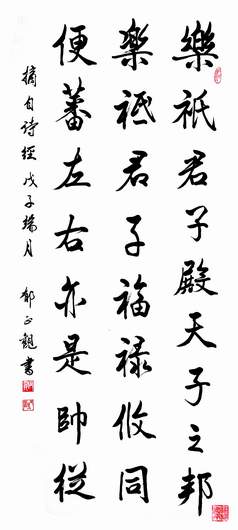 樂祇君子殿天子之邦
樂祗君子福禄攸同
便蕃左右亦是帥從
摘自诗經戊子端月
郁正龍書